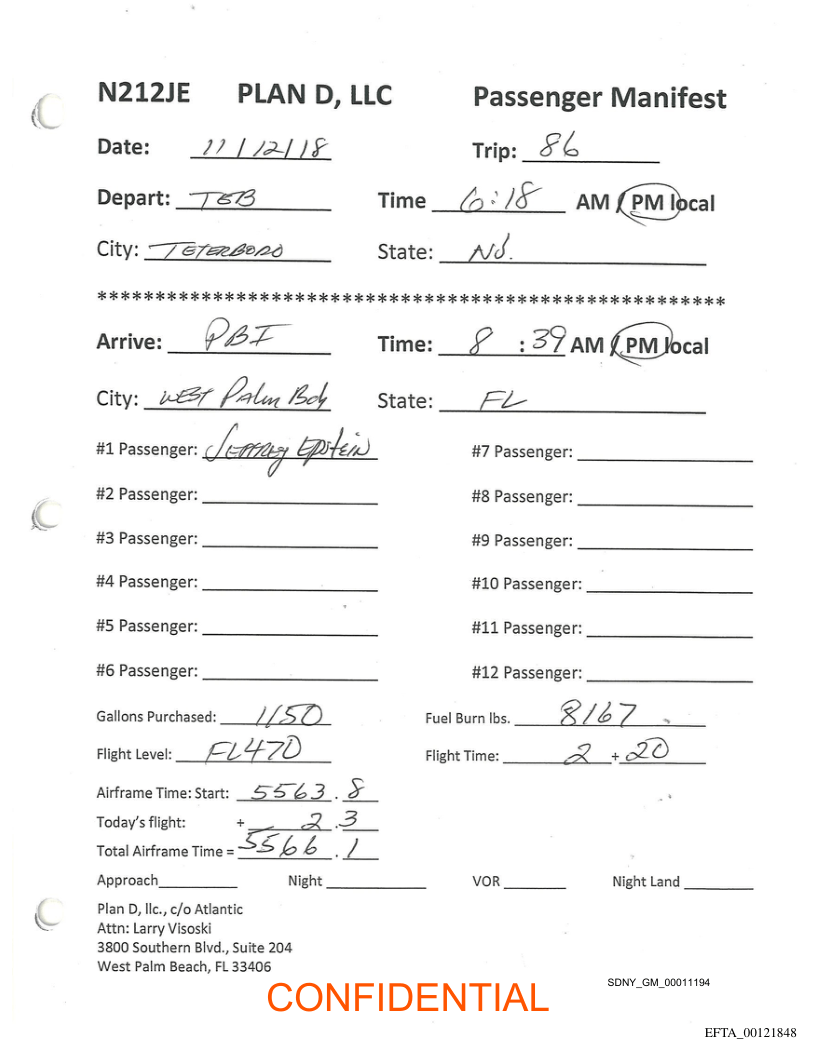 N212JE PLAN D, LLC Passenger Manifest
Date: 11/12/18 Trip: 86
Depart: TEB Time 6:18 AM / PM local
City: TETERBORO State: NJ.
******************************************************
Arrive: PBI Time: 8 : 39 AM / PM local
City: WEST Palm Bch State: FL
#1 Passenger: Jeffrey Epstein #7 Passenger:
#2 Passenger: #8 Passenger:
#3 Passenger: #9 Passenger:
#4 Passenger: #10 Passenger:
#5 Passenger: #11 Passenger:
#6 Passenger: #12 Passenger:
Gallons Purchased: 1150 Fuel Burn lbs. 8167
Flight Level: FL470 Flight Time: 2 + 20
Airframe Time: Start: 5563.8
Today's flight: + 2.3
Total Airframe Time = 5566.1
Approach Night VOR Night Land
Plan D, llc., c/o Atlantic
Attn: Larry Visoski
3800 Southern Blvd., Suite 204
West Palm Beach, FL 33406
SDNY_GM_00011194
CONFIDENTIAL
EFTA_00121848